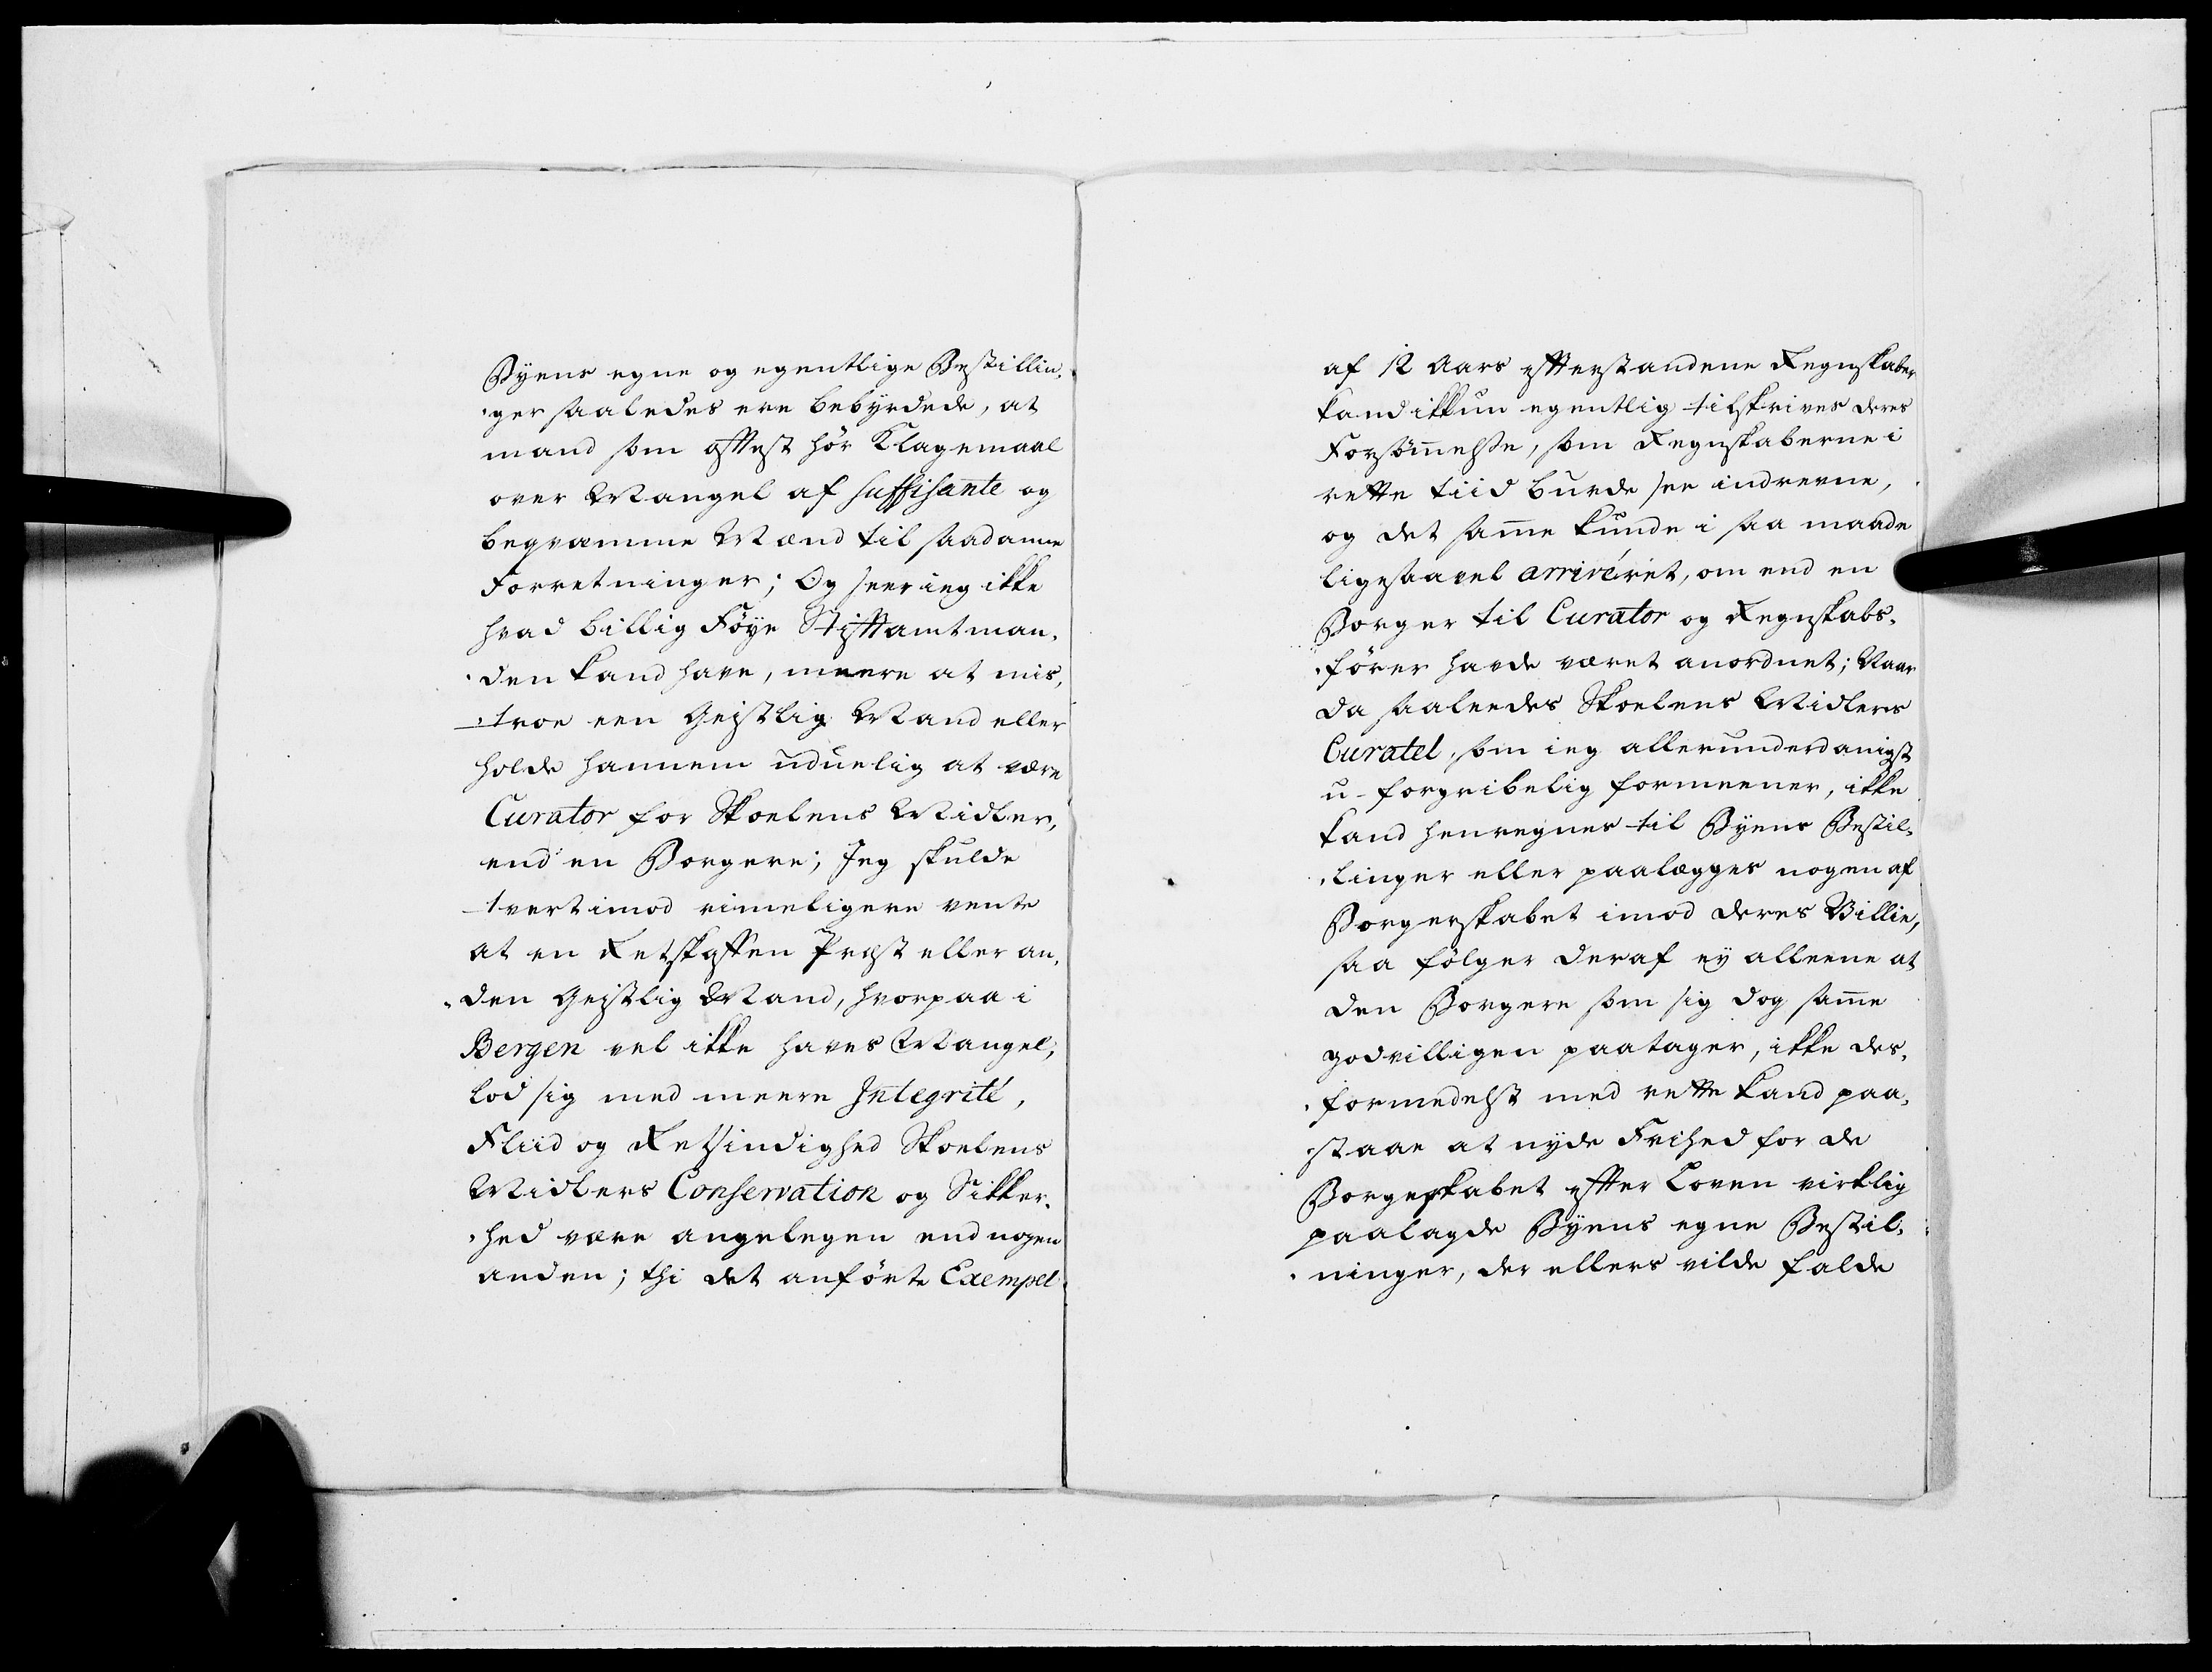 Byens egne og egentlige Bestillin-
-ger saaledes ere bebyrdede, at
mand som oftest hör Klagemaal
over Mangel af suffisante og
beqvæmme Mænd til saadanne
Forretninger; Og seer ieg ikke
hvad billig Föye Stiftamtman-
-den kand have, meere at mis-
-troe een Geistlig Mand eller
holde hannem uduelig at være
Curator for Skoelens Midler,
end en Borgere; Jeg skulde
tvertimod rimeligere vente
at en Retskaffen Præst eller an-
-den Geistlig Mand, hvorpaa i
Bergen vel ikke haves Mangel,
lod sig med meere Integrité,
Fliid og Retsindighed Skoelens
Midlers Conservation og Sikker-
-hed være angelegen end nogen
anden; thi det anförte Exempel
af 12 Aars efterstandene Regnskaber
kand ikkun egentlig tilskrives deres
Forsömmelsse, som Regnskaberne i
rette tiid burde see indrevne,
og det samme kunde i saa maade
ligesaavel arriveret, om end en
Borger til Curator og Regnskabs-
-förer havde været anordnet; Naar
da saaleedes Skoelens Midlers
Curatel, som ieg allerunderdanigst
u-forgribelig formeener, ikke
kand henregnes til Byens Bestil-
-linger eller paalægges nogen af
Borgerskabet imod deres Villie,
saa fölger deraf ey alleene at
den Borgere som sig dog samme
godvilligen paatager, ikke des-
-formedelst med rette kand paa-
-staae at nyde Frihed for de
Borgerskabet efter Loven virklig
paalagde Byens egne Bestil-
-ninger, der ellers vilde falde